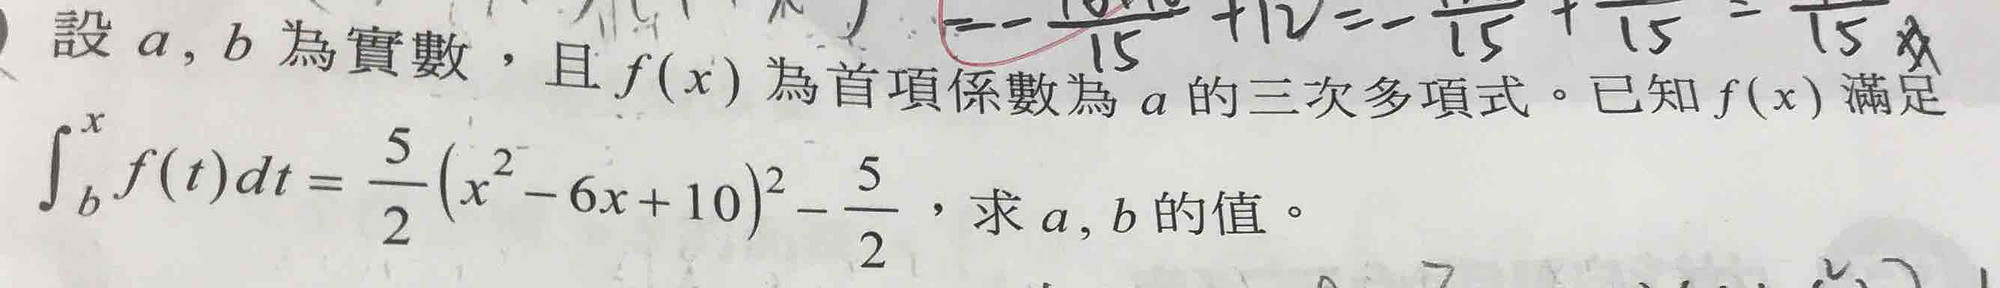 =- 15 +12=- 15 + 15 = 15
設 a, b 為實數，且 f(x) 為首項係數為 a 的三次多項式。已知 f(x) 滿足
∫_b^x f(t)dt = 5/2 (x² − 6x + 10)² − 5/2，求 a, b 的值。